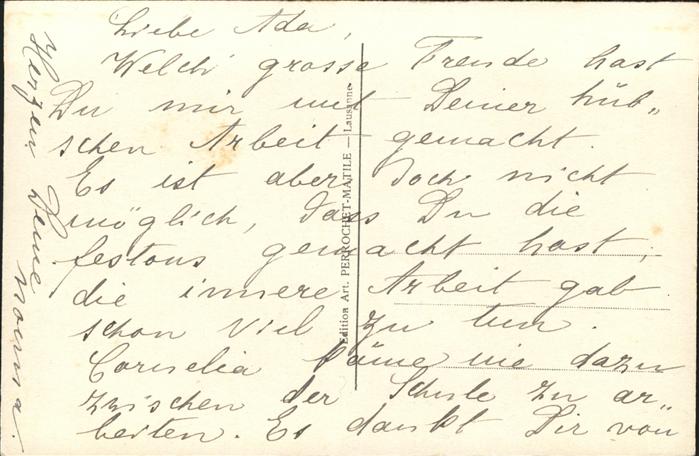 Liebe Ada,
Welch' grosse Freude hast
Du mir mit Deiner hüb„
schen Arbeit gemacht.
Es ist aber doch nicht
möglich, dass Du die
festons gemacht hast,
die innere Arbeit gab
schon viel zu tun.
Cornelia käme nie dazu
zwischen der Schule zu ar„
beiten. Es dankt Dir von
Herzen Deine
Monna.
Edition Art. PERROCHET-MATILE — Lausanne